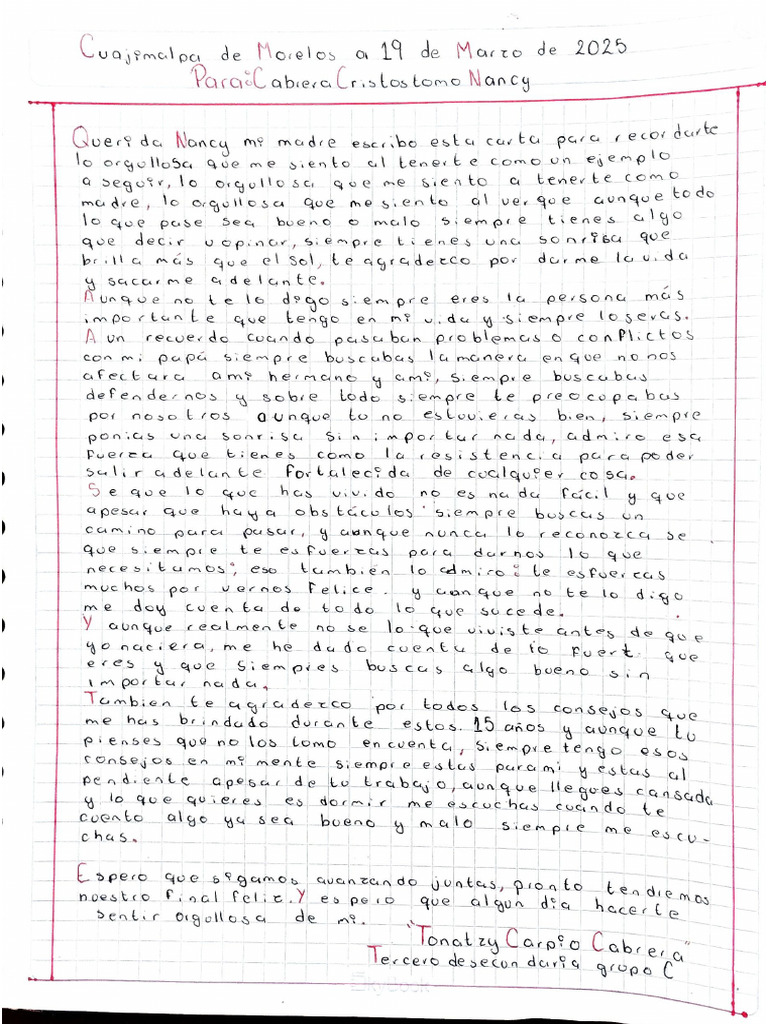 Cuajimalpa de Morelos a 19 de Marzo de 2025
Para: Cabrera Cristostomo Nancy
Querida Nancy mi madre escribo esta carta para recordarte
lo orgullosa que me siento al tenerte como un ejemplo
a seguir, lo orgullosa que me siento a tenerte como
madre, lo orgullosa que me siento al ver que aunque todo
lo que pase sea bueno o malo siempre tienes algo
que decir u opinar, siempre tienes una sonrisa que
brilla más que el sol, te agradezco por darme la vida
y sacarme adelante.
Aunque no te lo digo siempre eres la persona más
importante que tengo en mi vida y siempre lo seras.
Aun recuerdo cuando pasaban problemas o conflictos
con mi papá siempre buscabas la manera en que no nos
afectura a mi hermano y a mi, siempre buscabas
defendernos y sobre todo siempre te preocopabas
por nosotros aunque tu no estuvieras bien, siempre
ponias una sonrisa sin importar nada, admiro esa
fuerza que tienes como la resistencia para poder
salir adelante fortalecida de cualquier cosa.
Se que lo que has vivido no es nada fácil y que
apesar que haya obstáculos siempre buscas un
camino para pasar, y aunque nunca lo reconozca se
que siempre te esfuerzas para darnos lo que
necesitamos, eso también lo admiro: te esfuercas
muchos por vernos felice. y aunque no te lo digo
me doy cuenta de todo lo que sucede.
Y aunque realmente no se lo que viviste antes de que
yo naciera, me he dado cuenta de lo fuert. que
eres y que siempres buscas algo bueno sin
importar nada.
Tambien te agradezco por todos los consejos que
me has brindado durante estos. 15 años y aunque tu
pienses que no los tomo en cuenta, siempre tengo esos
consejos en mi mente siempre estas para mi y estas al
pendiente apesar de tu trabajo, aunque llegues cansada
y lo que quieres es dormir me escuchas cuando te
cuento algo ya sea bueno y malo siempre me escu-
chas.
Espero que sigamos avanzando juntas, pronto tendremos
nuestro final feliz. Y espero que algun dia hacerte
sentir orgollosa de mi.
"Tonatzy Carpio Cabrera"
Tercero de secundaria grupo C